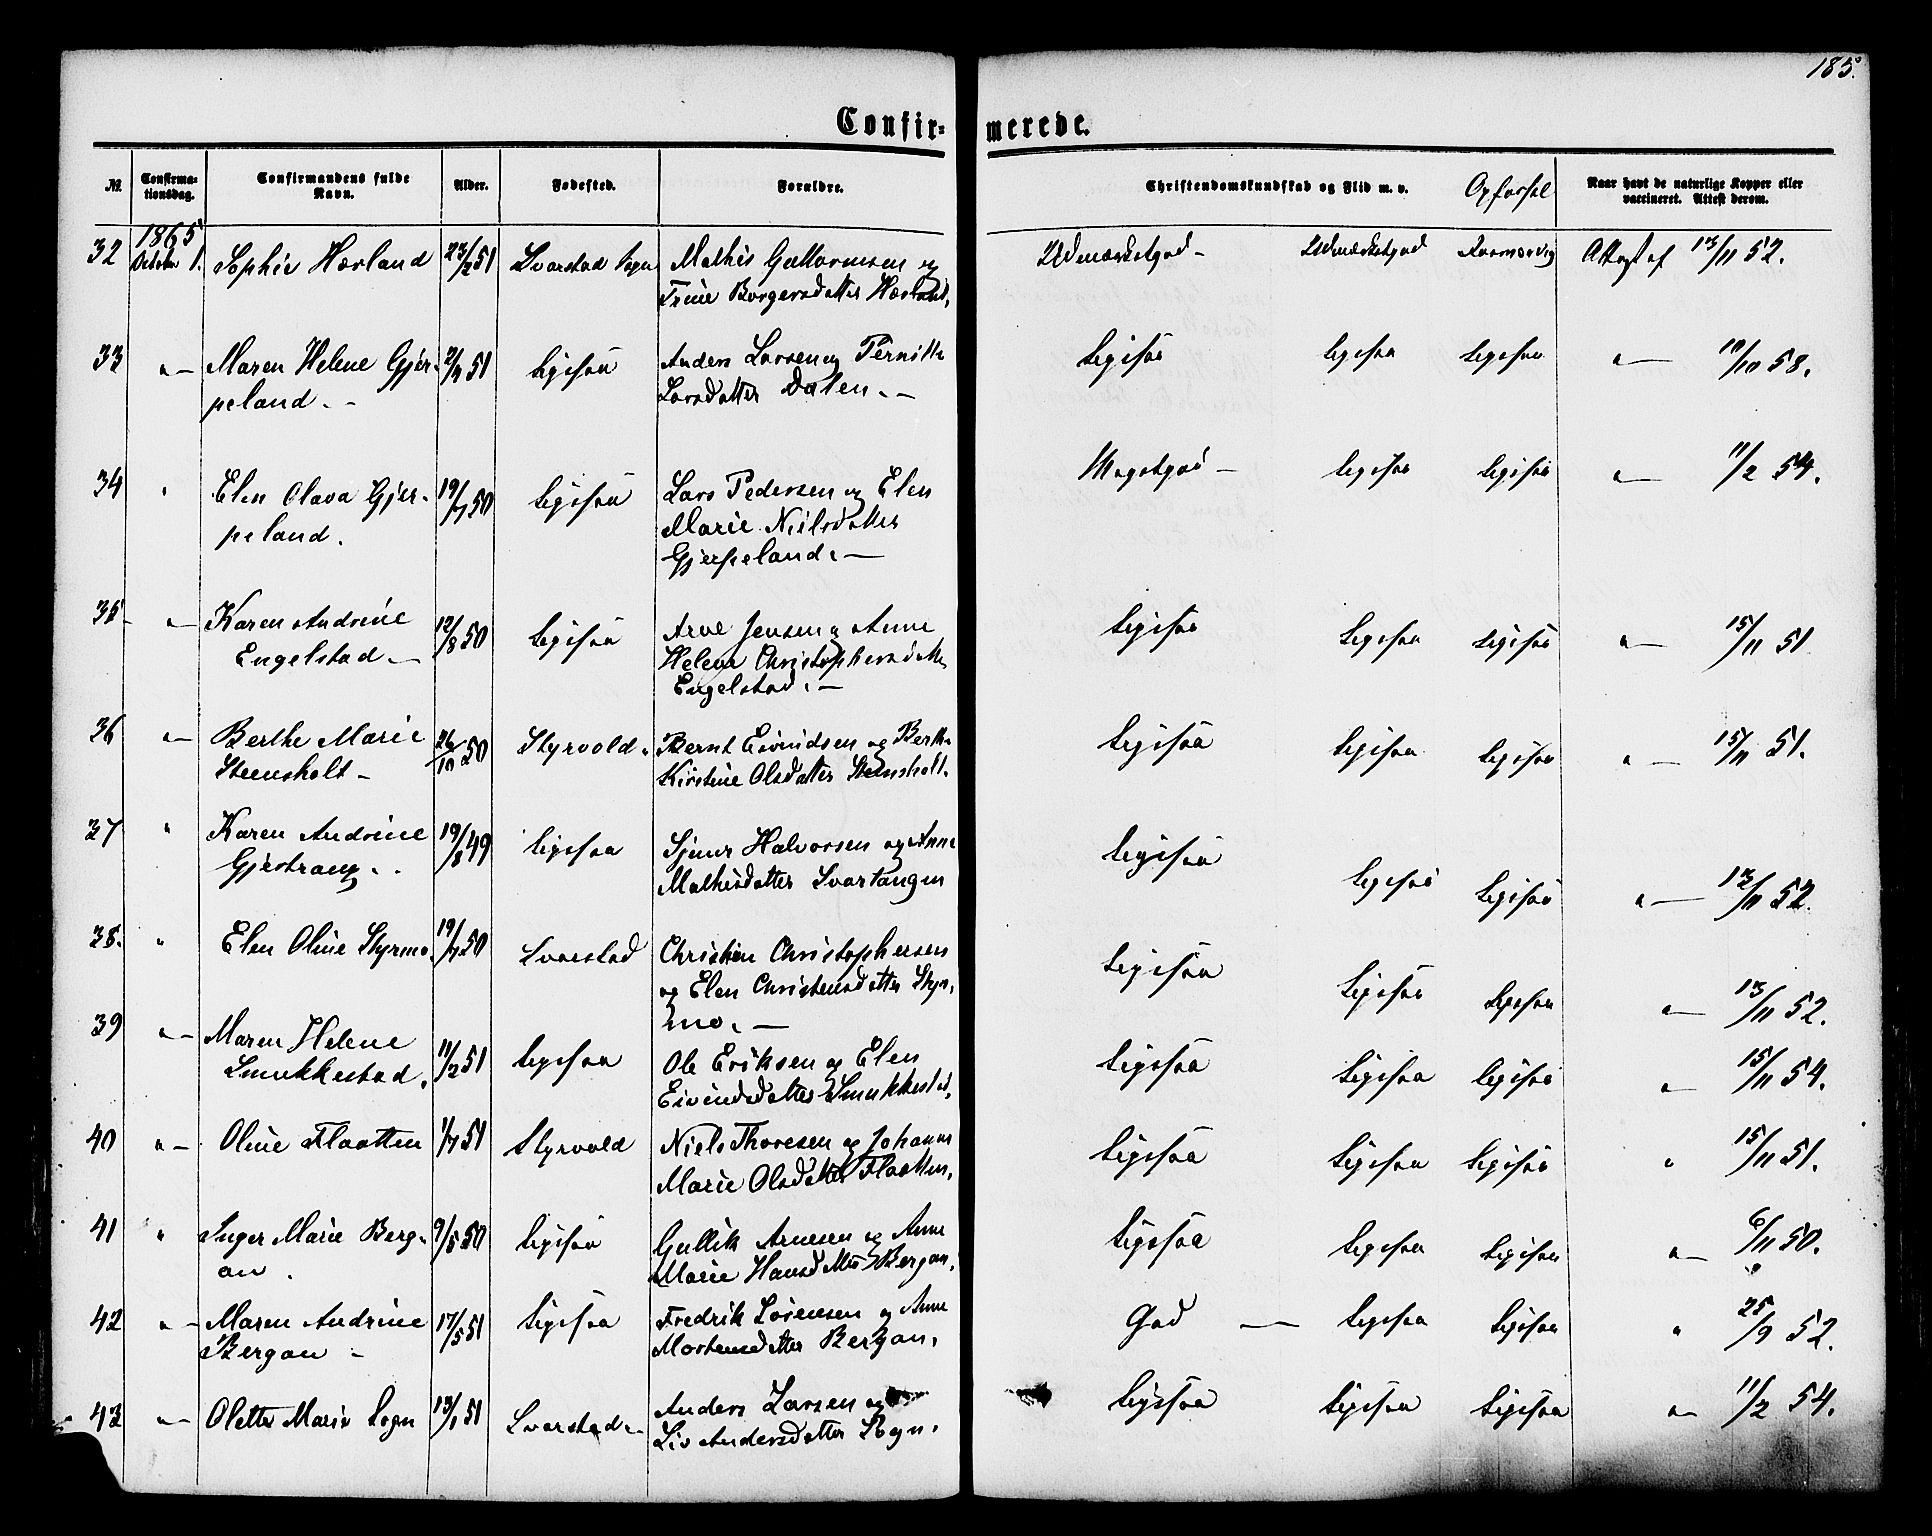 185.
Confirmerede.
No. Confirmationsdag. Confirmandens fulde Navn. Alder. Fødested. Forældre. Christendomskundskab og Flid m. v. Opførsel Naar havt de naturlige Kopper eller vaccineret. Attest derom.
1865
32 October 1. Sophie Hærland 23/2 51 Svarstad Sogn Mathis Guttormsen og Udmærketgod - Udmærketgod Attest af 13/11 52.
Trine Borgersdatter Hærland.
33 "— Maren Helene Gjer- 2/4 51 Ligesaa Anders Larsen og Pernille Ligesaa Ligesaa Ligesaa "— 10/10 58.
peland. - Larsdatter Dalen. -
34 " Elen Olava Gjer- 19/7 50 Ligesaa Lars Pedersen og Elen Megetgod - Ligesaa Ligesaa "— 11/2 54.
peland. Marie Nielsdatter
Gjerpeland. —
35 "— Karen Andrine 12/8 50 Ligesaa Arve Jensen og Anne Ligesaa Ligesaa Ligesaa "— 15/11 51
Engelstad — Helene Christophersdatter
Engelstad. —
36 "— Berthe Marie 26/10 50 Styrvold. Bernt Eivindsen og Berthe Ligesaa Ligesaa Ligesaa "— 15/11 51.
Steensholt - Kirstine Olsdatter Stensholt.
37 " Karen Andrine 19/8 49 Ligesaa Halvorsen og Anne Ligesaa Ligesaa Ligesaa "— 13/11 52.
Gjestrang. . Mathisdatter Svartangen
38. " Elen Oline Styrmo. 19/7 50 Svarstad Christen Christophersen Ligesaa Ligesaa Ligesaa "— 13/11 52.
og Elen Christensdatter Styr-
mo. —
39 "— Maren Helene 11/2 51 Ligesaa Ole Eriksen og Elen Ligesaa Ligesaa Ligesaa "— 15/11 54.
Smukkestad. Eivindsdatter Smukkestad.
40 "— Oline Flaatten 1/7 51 Styrvold Niels Thoresen og Johanne Ligesaa Ligesaa Ligesaa " 15/11 51.
Marie Olsdatter Flaatten.
41 " Inger Marie Berg- 9/5 50 Ligesaa Gullik Arnesen og Anne Ligesaa Ligesaa Ligesaa "— 6/11 50.
an. Marie Hansdatter Bergan.
42 "— Maren Andrine 17/5 51 Ligesaa Fredrik Sørensen og Anne God — Ligesaa Ligesaa " 25/9 52.
Bergan - Mortensdatter Bergan.
43 "— Olette Marie Sogn 13/1 51 Svarstad. Anders Larsen og Ligesaa Ligesaa Ligesaa "— 11/2 54.
Liv Andersdatter Sogn.